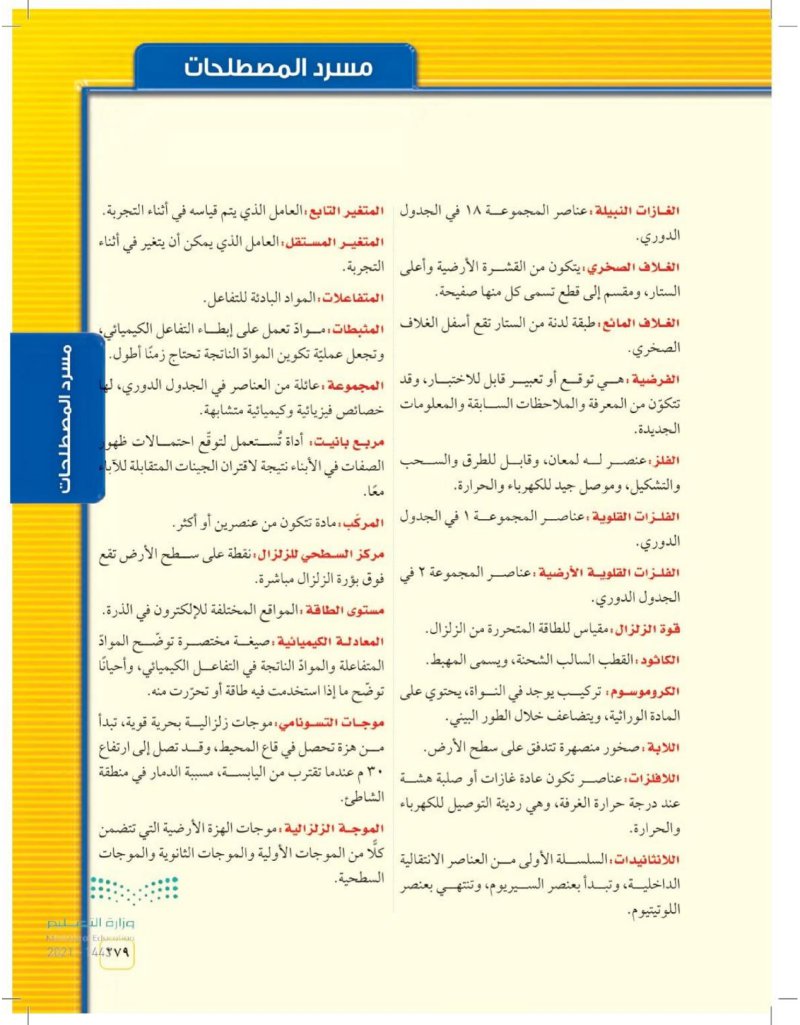 مسرد المصطلحات
الغازات النبيلة: عناصر المجموعة ١٨ في الجدول
الدوري.
الغلاف الصخري: يتكون من القشرة الأرضية وأعلى
الستار، ومقسم إلى قطع تسمى كل منها صفيحة.
الغلاف المائع: طبقة لدنة من الستار تقع أسفل الغلاف
الصخري.
الفرضية: هي توقع أو تعبير قابل للاختبار، وقد
تتكوّن من المعرفة والملاحظات السابقة والمعلومات
الجديدة.
الفلز: عنصر له لمعان، وقابل للطرق والسحب
والتشكيل، وموصل جيد للكهرباء والحرارة.
الفلزات القلوية: عناصر المجموعة ١ في الجدول
الدوري.
الفلزات القلوية الأرضية: عناصر المجموعة ٢ في
الجدول الدوري.
قوة الزلزال: مقياس للطاقة المتحررة من الزلزال.
الكاثود: القطب السالب الشحنة، ويسمى المهبط.
الكروموسوم: تركيب يوجد في النواة، يحتوي على
المادة الوراثية، ويتضاعف خلال الطور البيني.
اللابة: صخور منصهرة تتدفق على سطح الأرض.
اللافلزات: عناصر تكون عادة غازات أو صلبة هشة
عند درجة حرارة الغرفة، وهي رديئة التوصيل للكهرباء
والحرارة.
اللانثانيدات: السلسلة الأولى من العناصر الانتقالية
الداخلية، وتبدأ بعنصر السيريوم، وتنتهي بعنصر
اللوتيتيوم.
المتغير التابع: العامل الذي يتم قياسه في أثناء التجربة.
المتغير المستقل: العامل الذي يمكن أن يتغير في أثناء
التجربة.
المتفاعلات: المواد البادئة للتفاعل.
المثبطات: موادّ تعمل على إبطاء التفاعل الكيميائي،
وتجعل عمليّة تكوين الموادّ الناتجة تحتاج زمنًا أطول.
المجموعة: عائلة من العناصر في الجدول الدوري، لها
خصائص فيزيائية وكيميائية متشابهة.
مربع بانيت: أداة تُستعمل لتوقّع احتمالات ظهور
الصفات في الأبناء نتيجة لاقتران الجينات المتقابلة للآباء
معًا.
المركّب: مادة تتكون من عنصرين أو أكثر.
مركز السطحي للزلزال: نقطة على سطح الأرض تقع
فوق بؤرة الزلزال مباشرة.
مستوى الطاقة: المواقع المختلفة للإلكترون في الذرة.
المعادلة الكيميائية: صيغة مختصرة توضّح الموادّ
المتفاعلة والموادّ الناتجة في التفاعل الكيميائي، وأحيانًا
توضّح ما إذا استخدمت فيه طاقة أو تحرّرت منه.
موجات التسونامي: موجات زلزالية بحرية قوية، تبدأ
من هزة تحصل في قاع المحيط، وقد تصل إلى ارتفاع
٣٠ م عندما تقترب من اليابسة، مسببة الدمار في منطقة
الشاطئ.
الموجة الزلزالية: موجات الهزة الأرضية التي تتضمن
كلًّا من الموجات الأولية والموجات الثانوية والموجات
السطحية.
مسرد المصطلحات
وزارة التعليم
Ministry of Education
2021 - 144
٢٧٩